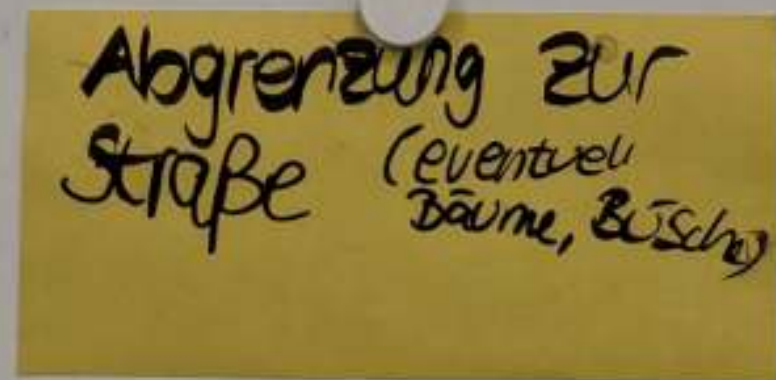 Abgrenzung zur
Straße (eventuell
Bäume, Büsche)